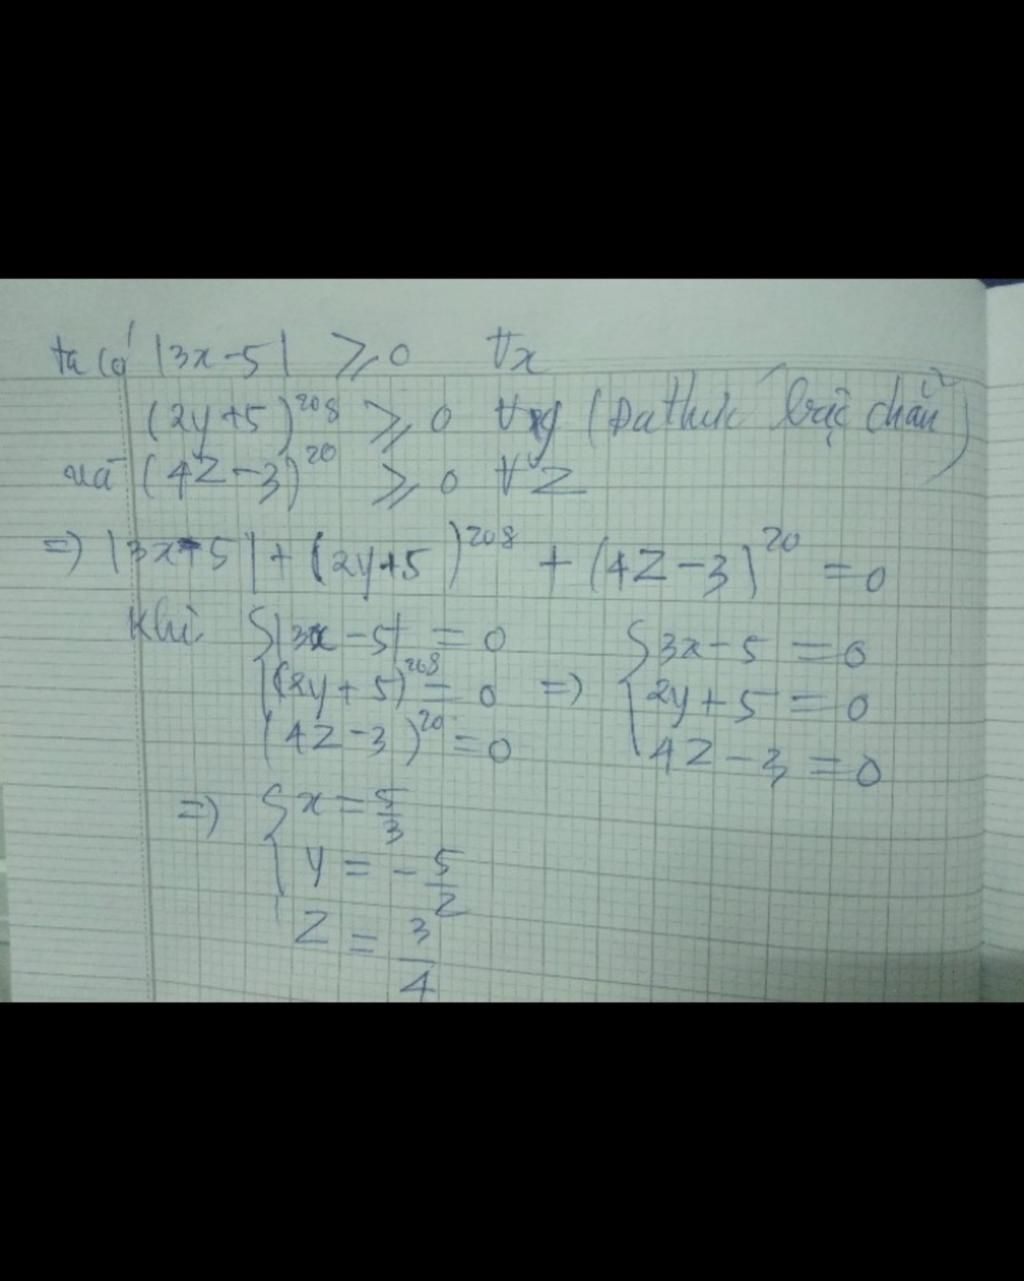 ta có |3x-5| ⩾ 0 ∀x
(2y+5)^208 ⩾ 0 ∀y (Đa thức bậc chẵn)
và (4Z-3)^20 ⩾ 0 ∀Z
=> |3x-5| + (2y+5)^208 + (4Z-3)^20 = 0
Khi { |3x-5| = 0
(2y+5)^208 = 0
(4Z-3)^20 = 0
=> { 3x-5 = 0
2y+5 = 0
4Z-3 = 0
=> { x = 5/3
y = -5/2
Z = 3/4